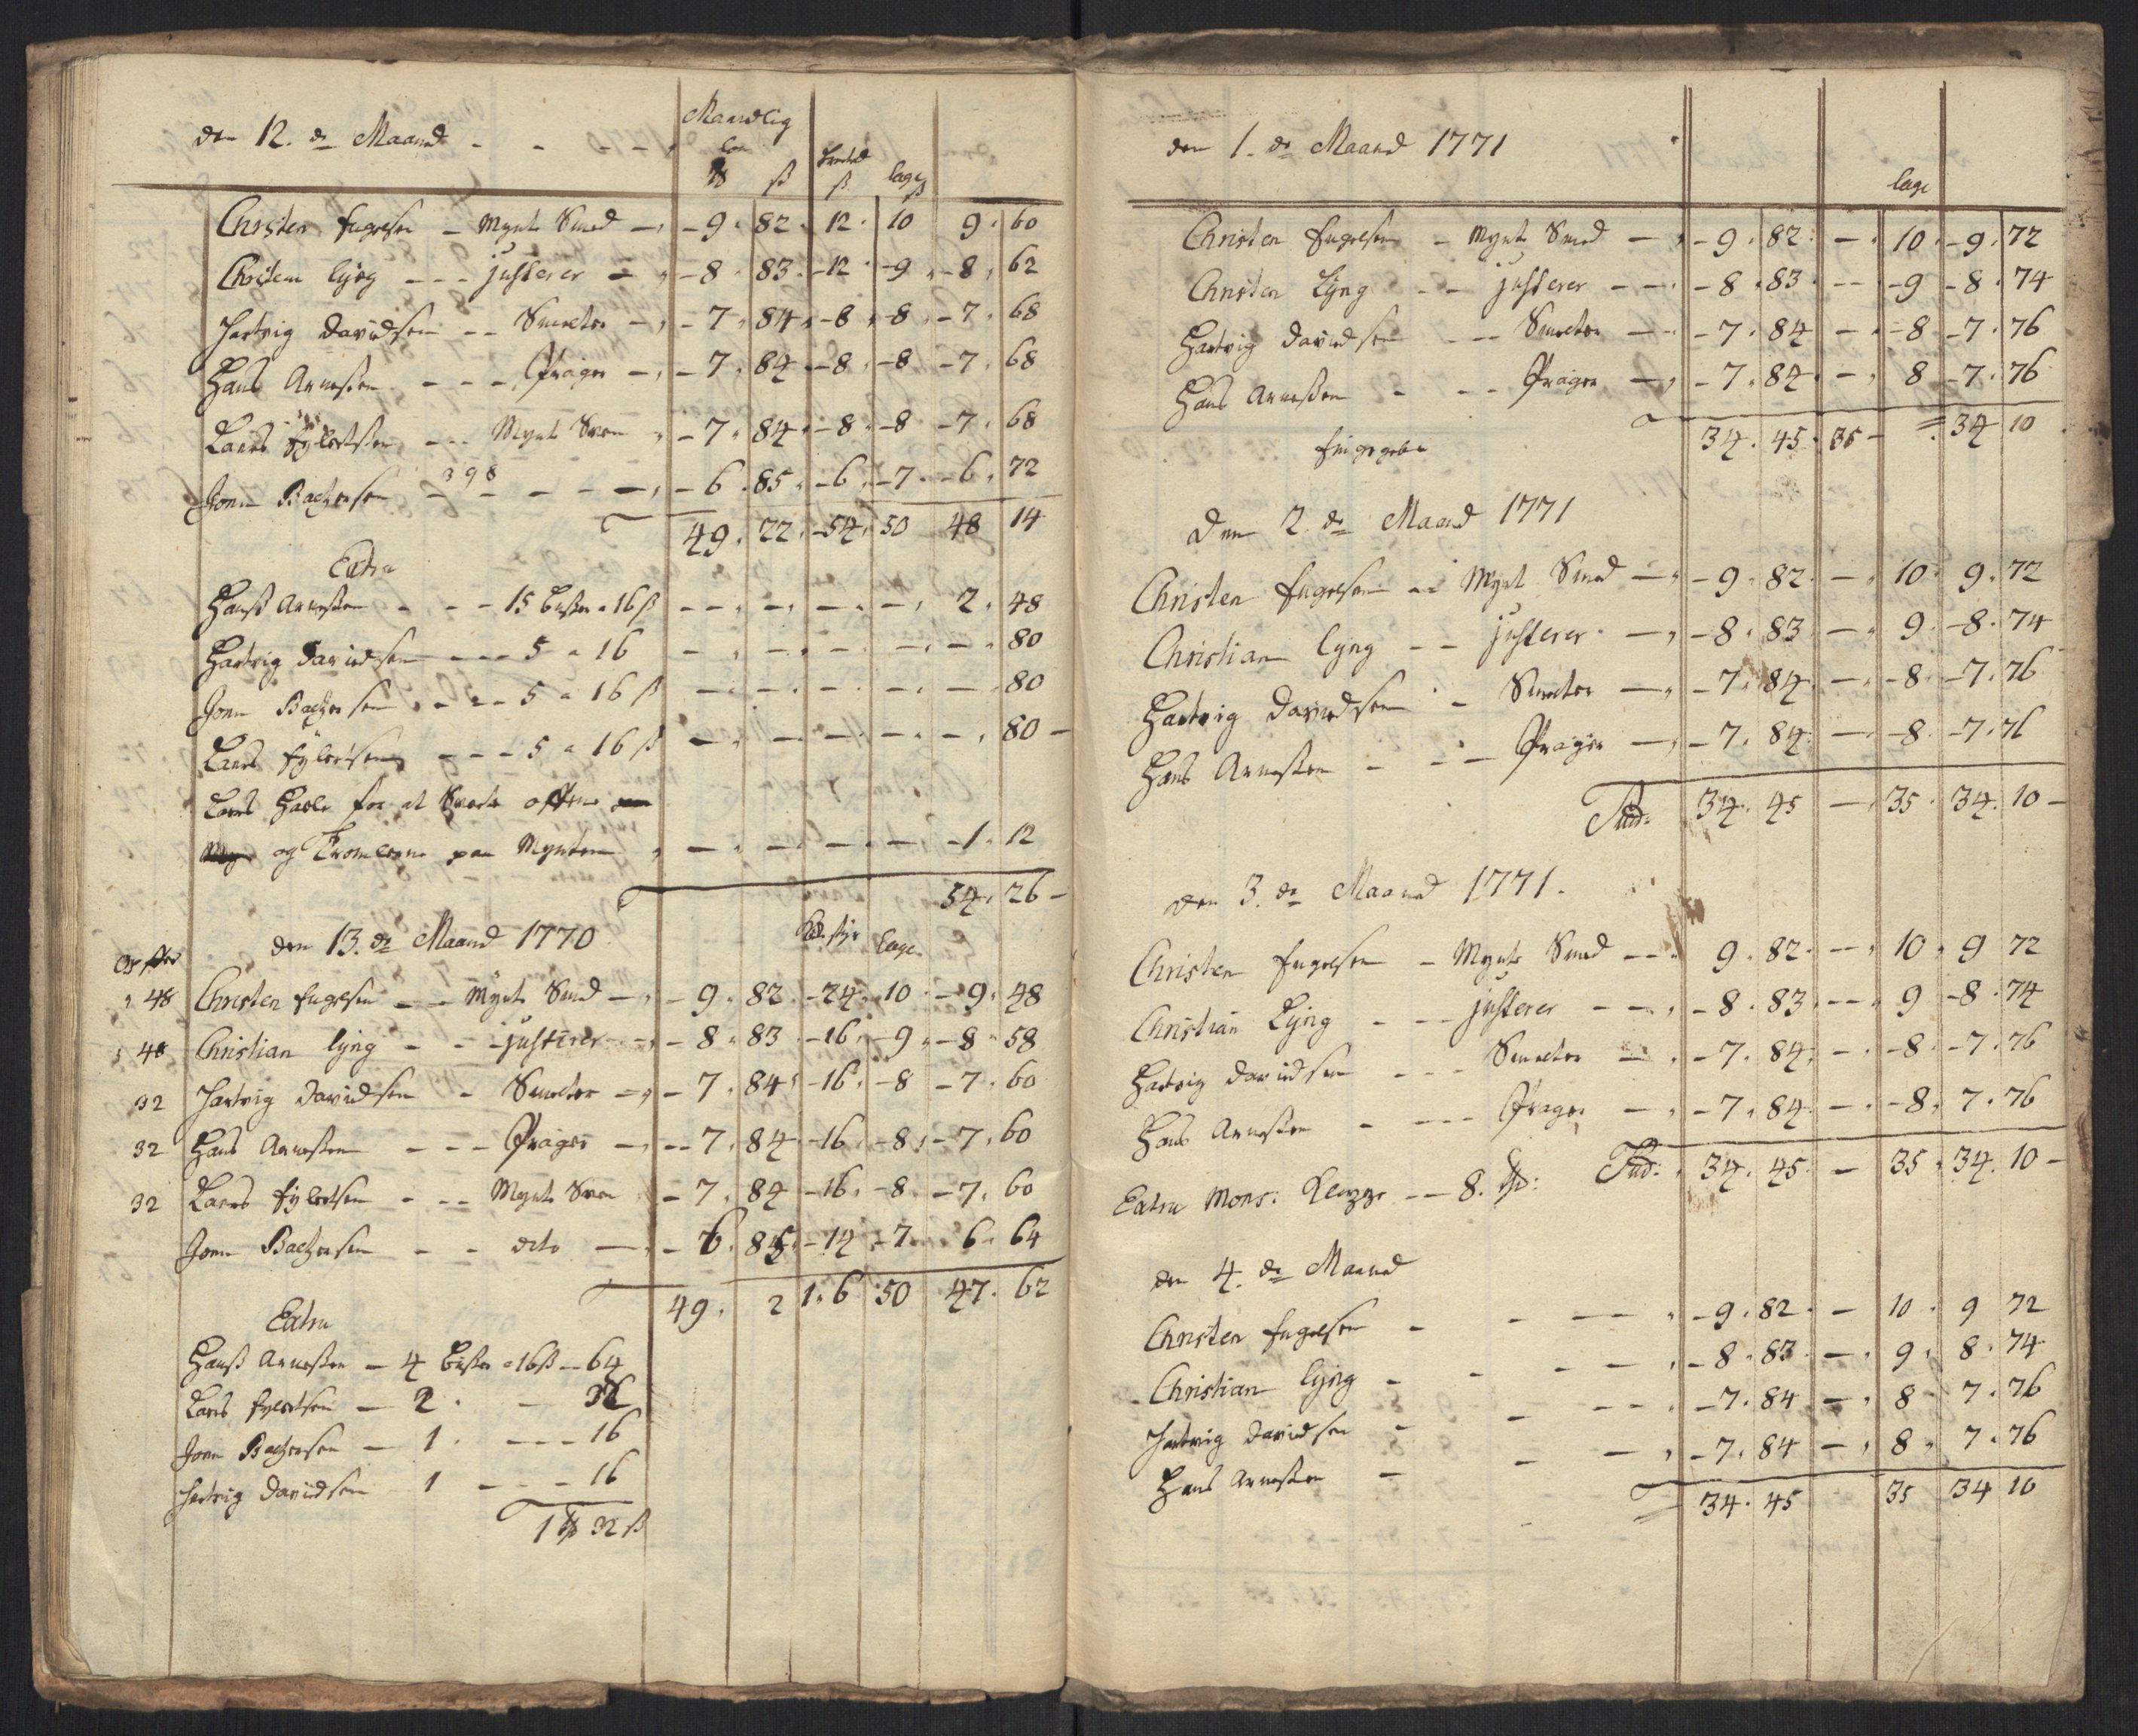 den 12. de Maaned - - - -
Maanedlig
løn
ß ß lage ß
Christen Engelsen - Mynt Smed - 9. 82. 12. 10 9. 60
Christian Lyng - - - justerer - 8. 83. 12. 9. 8. 62
Hartvig Davidsen - - Smelter - 7. 84. 8. 8. 7. 68
Hans Arnesen - - - Präger - 7. 84. 8. 8. 7. 68
Laers Eylertsen - - - Mynt Sven - 7. 84. 8. 8 7. 68
Jonn - 398 - - - 6. 85. 6. 7. 6. 72
49. 22. 54. 50 48 14
Extra
Hanß Arnesen - - - 15 a 16 ß - - - - 2. 48
Hartvig Davidsen - - - 5 a 16 - - - - - 80
Jonn - - - 5 a 16 ß - - - - - 80
Laers Eylertsen - - - 5 a 16 ß - - - - - 80 -
Laers for at
og paa Mynten - - - - 1. 12
54. 26 -
den 13. de Maaned 1770
lage
48 Christen Engelsen - - Mynt Smed - 9. 82. 24. 10. 9. 48
48 Christian Lyng - - - justerer - 8. 83. 16. 9. 8. 58
32 Hartvig Davidsen - Smelter - 7. 84. 16. 8 7. 60
32 Hans Arnesen - - - Präger - 7. 84. 16. 8. 7. 60
32 Laers Eylertsen - - - Mynt Sven - 7. 84 16. 8. 7. 60
Jonn - - dito - 6. 85. 14. 7. 6. 64
49. 2 1. 6 50 47. 62
Extra
Hanß Arnesen - 4 a 16 ß - 64
Laers Eylertsen - 2. - 32
Jonn - 1. - - - 16
Hartvig Davidsen - 1 - - - 16
1 32 ß
den 1. de Maaned 1771
lage
Christen Engelsen - Mynt Smed - 9. 82. - 10. 9. 72
Christen Lyng - - justerer - - 8. 83. - 9 8. 74
Hartvig Davidsen - - - Smelter - 7. 84 - 8 7. 76
Hans Arnesen - - - Präger - 7. 84. - 8 7. 76
34. 45. 35 - 34 10
Den 2. de Maaned 1771
Christen Engelsen - Mynt Smed - 9. 82. - 10. 9. 72
Christian Lyng - - justerer - 8. 83 - 9. 8. 74
Hartvig Davidsen - Smelter - 7. 84. - 8. 7. 76
Hans Arnesen - - - Präger - 7. 84 - 8. 7. 76
34. 45 - 35. 34. 10 -
den 3. de Maaned 1771.
Christen Engelsen - Mynt Smed - - 9. 82. - 10. 9 72
Christian Lyng - - - justerer - - 8. 83. - 9 8. 74
Hartvig Davidsen - - - Smelter - 7. 84. - 8. 7. 76
Hans Arnesen - - - - Präger - 7. 84. - 8. 7. 76
34. 45. - 35. 34. 10 -
Extra Mons: - - 8.
den 4. de Maaned
Christen Engelsen - - - - 9. 82. - 10. 9 72
Christian Lyng - - - - 8. 83. - 9. 8. 74
Hartvig Davidsen - - - - 7. 84 - 8. 7. 76
Hans Arnesen - - - 7. 84 - 8. 7. 76
34. 45 35 34 10